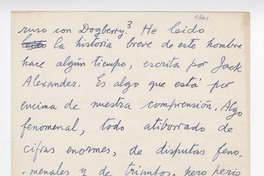 ruso con Dogberry? He leído
la historia breve de este hombre
hace algún tiempo, escrita por Jack
Alexander. Es algo que está por
encima de nuestra comprensión. Algo
fenomenal, todo atiborrado de
cifras enormes, de disputas feno-
menales y de triunfos, pero